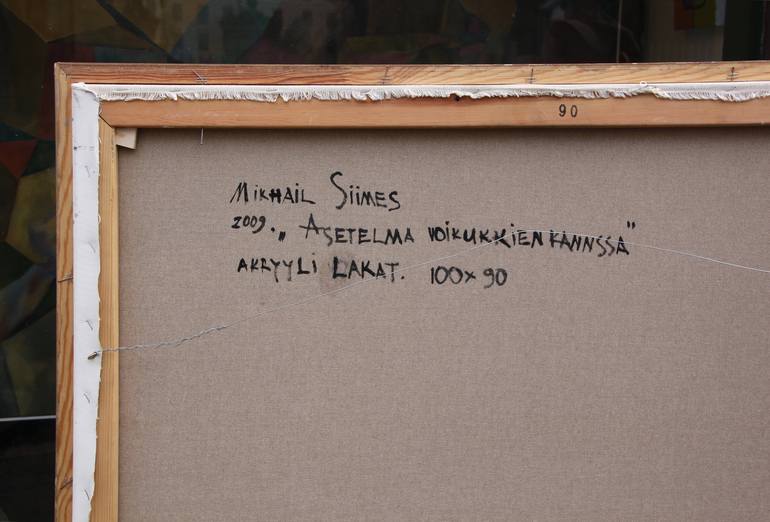 90
Mikhail Siimes
2009. „Asetelma voikukkien kannssa"
akryyli lakat. 100x90